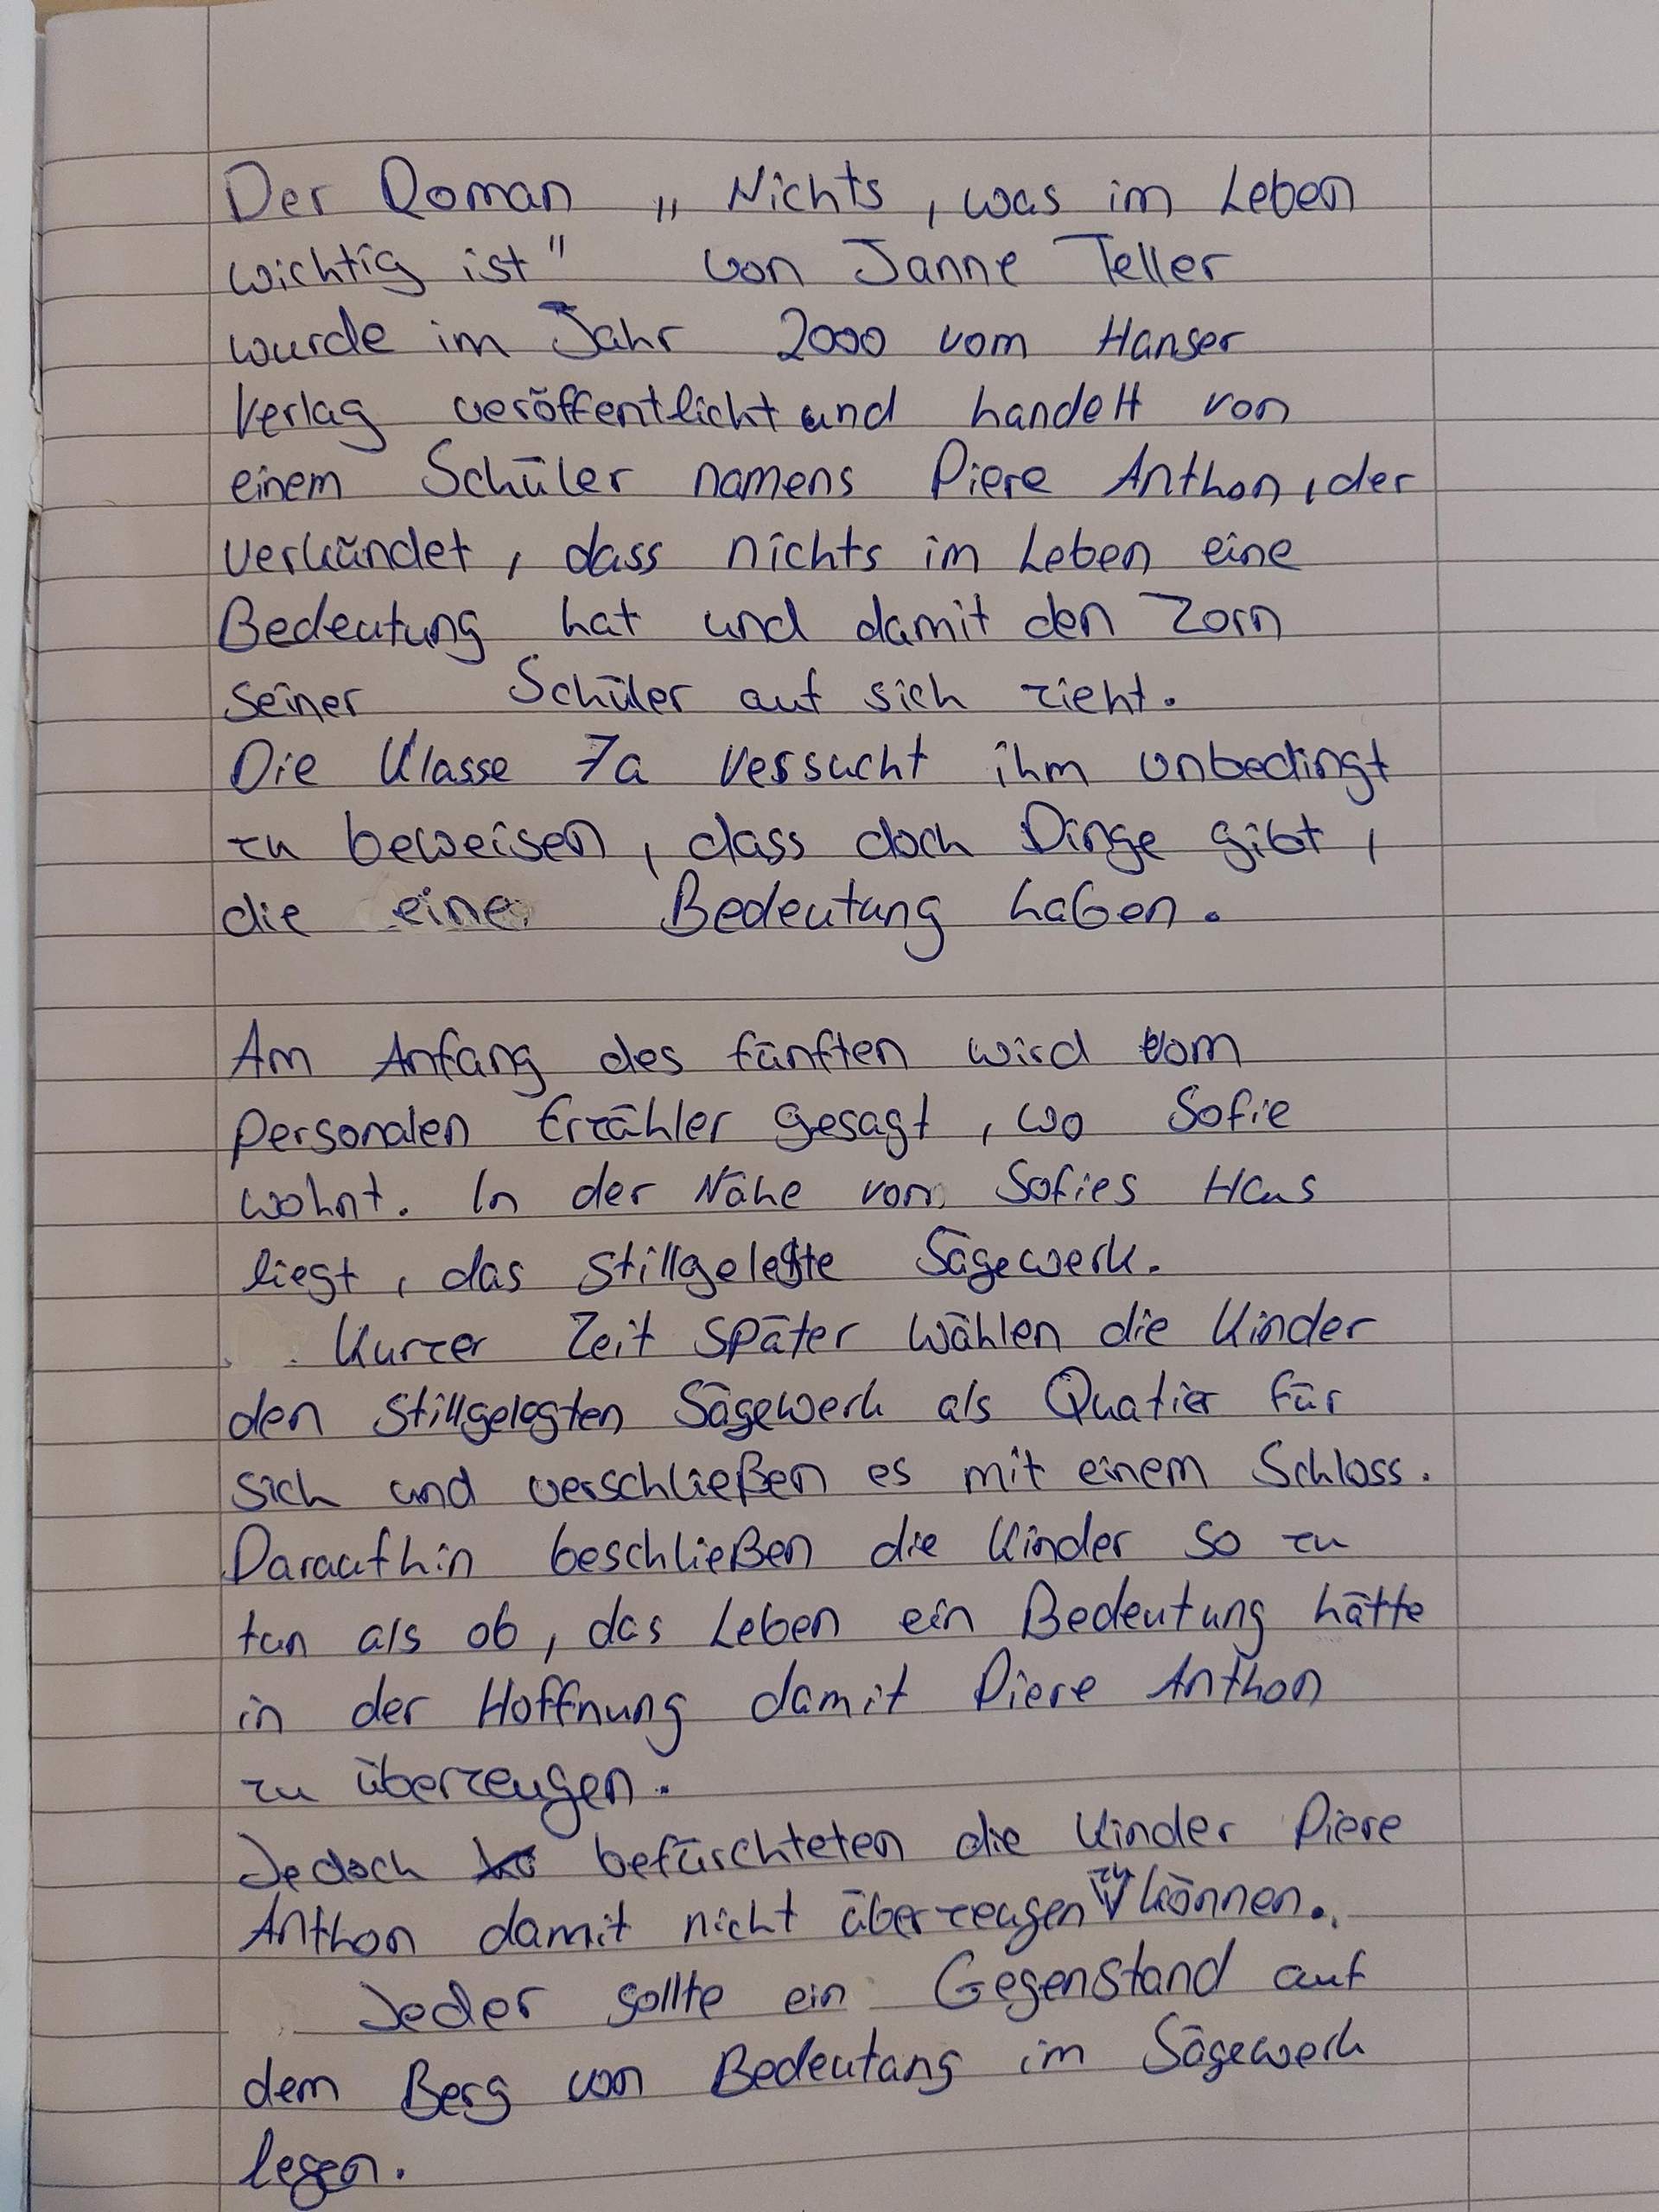 Der Roman „ Nichts, was im Leben
wichtig ist" von Janne Teller
wurde im Jahr 2000 vom Hanser
Verlag veröffentlicht und handelt von
einem Schüler namens Piere Anthon, der
verkündet, dass nichts im Leben eine
Bedeutung hat und damit den Zorn
seiner Schüler auf sich zieht.
Die Klasse 7a versucht ihm unbedingt
zu beweisen, dass doch Dinge gibt,
die eine Bedeutung haben.
Am Anfang des fünften wird vom
personalen Erzähler gesagt, wo Sofie
wohnt. In der Nähe von Sofies Haus
liegt, das stillgelegte Sägewerk.
Kurzer Zeit später wählen die Kinder
den stillgelegten Sägewerk als Quatier für
sich und verschließen es mit einem Schloss.
Daraufhin beschließen die Kinder so zu
tun als ob, das Leben ein Bedeutung hätte
in der Hoffnung damit Piere Anthon
zu überzeugen.
Jedoch befürchteten die Kinder Piere
Anthon damit nicht überzeugen zu können.
Jeder sollte ein Gegenstand auf
dem Berg von Bedeutung im Sägewerk
legen.